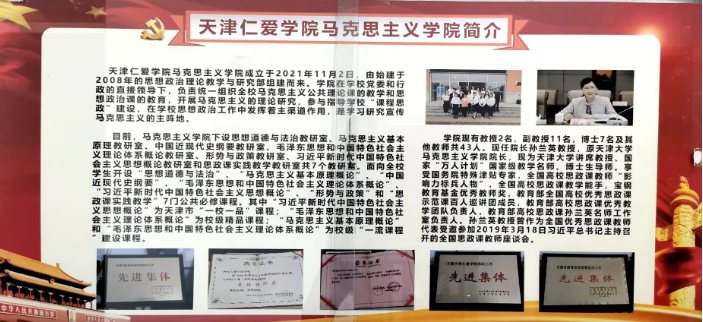 天津仁爱学院马克思主义学院简介
天津仁爱学院马克思主义学院成立于2021年11月2日，由始建于
2008年的思想政治理论教学与研究部组建而来。学院在学校党委和行
政的直接领导下，负责统一组织全校马克思主义公共理论课的教学和思
想政治课的教育，开展马克思主义的理论研究，参与指导学校“课程思
政”建设，在学校思想政治工作中发挥着主渠道作用，是学习研究宣传
马克思主义的主阵地。
目前，马克思主义学院下设思想道德与法治教研室、马克思主义基本
原理教研室、中国近现代史纲要教研室、毛泽东思想和中国特色社会主
义理论体系概论教研室、形势与政策教研室、习近平新时代中国特色社
会主义思想概论教研室和思政课实践教学教研室共7个教研室。面向全校
学生开设“思想道德与法治”、“马克思主义基本原理概论”、“中国
近现代史纲要”、“毛泽东思想和中国特色社会主义理论体系概论”、
“习近平新时代中国特色社会主义思想概论”、“形势与政策”和“思
政课实践教学”7门公共必修课程。其中“习近平新时代中国特色社会主
义思想概论”为天津市“一校一品”课程；“毛泽东思想和中国特色社
会主义理论体系概论”为校级精品课程；“马克思主义基本原理概论”
和“毛泽东思想和中国特色社会主义理论体系概论”为校级“一流课程
”建设课程。
学院现有教授2名，副教授11名，博士7名及其
他教师共43人。现任院长孙兰英教授，原天津大学
马克思主义学院院长，现为天津大学讲席教授，国
家“万人计划”国家级教学名师、博士生导师，享
受国务院特殊津贴专家，全国高校思政课教师“影
响力标兵人物”，全国高校思政课教学能手，宝钢
教育基金优秀教师奖，教育部全国高校优秀思政课
示范课百人巡讲团成员，教育部高校思政课优秀教
学团队负责人，教育部高校思政课孙兰英名师工作
室负责人，孙兰英教授曾作为全国优秀思政课教师
代表受邀参加2019年3月18日习近平总书记主持召
开的全国思政课教师座谈会。
先进集体
荣誉证书
先进集体
先进集体